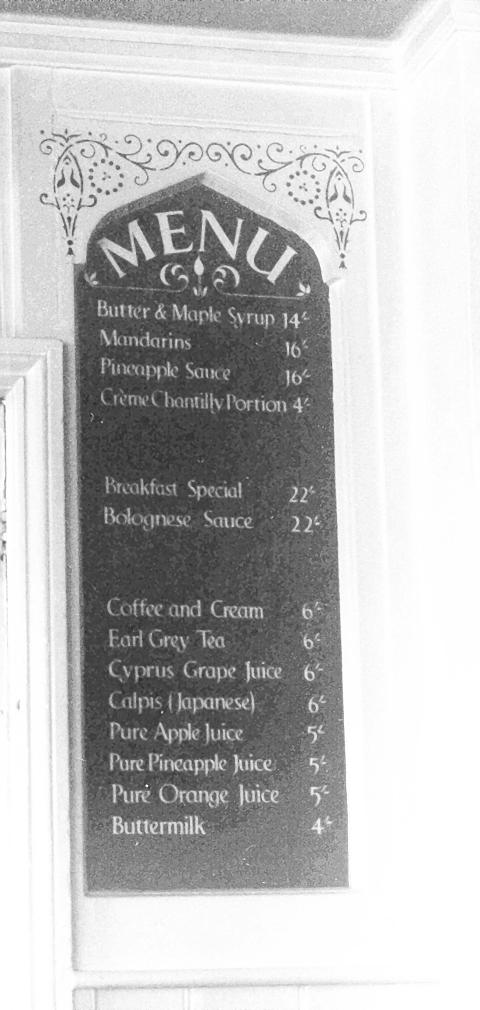 MENU
Butter & Maple Syrup 14/-
Mandarins 16/-
Pineapple Sauce 16/-
Crème Chantilly Portion 4/-
Breakfast Special 22/-
Bolognese Sauce 22/-
Coffee and Cream 6/-
Earl Grey Tea 6/-
Cyprus Grape Juice 6/-
Calpis (Japanese) 6/-
Pure Apple Juice 5/-
Pure Pineapple Juice 5/-
Pure Orange Juice 5/-
Buttermilk 4/-